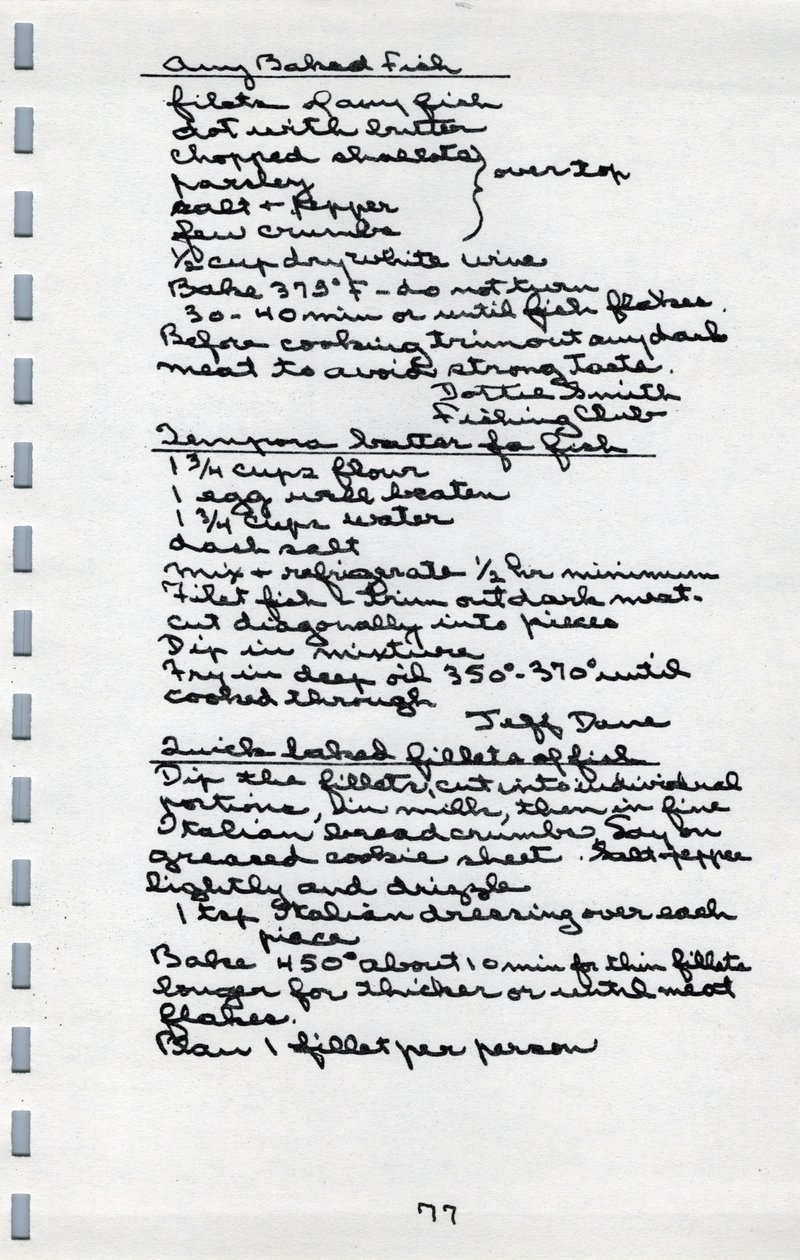 Any Baked Fish
filets of any fish
dot with butter
chopped shallots } over top
parsley
salt + pepper
few crumbs
1/2 cup dry white wine
Bake 375°F - do not turn
30 - 40 min or until fish flakes.
Before cooking trim out any dark
meat to avoid strong taste.
Dottie Smith
Fishing Club
Tempora batter fo fish
1 3/4 cups flour
1 egg well beaten
1 3/4 cups water
dash salt
mix + refrigerate 1/2 hr minimum
Filet fish & trim out dark meat -
cut diagonally into pieces
Dip in mixture
Fry in deep oil 350° - 370° until
cooked through
Jeff Dane
Quick baked fillets of fish
Dip the fillets, cut into individual
portions, in milk, then in fine
Italian bread crumbs. Lay on
greased cookie sheet. Salt + pepper
lightly and drizzle
1 tsp Italian dressing over each
piece
Bake 450° about 10 min for thin fillets
longer for thicker or until meat
flakes.
Plan 1 fillet per person
77